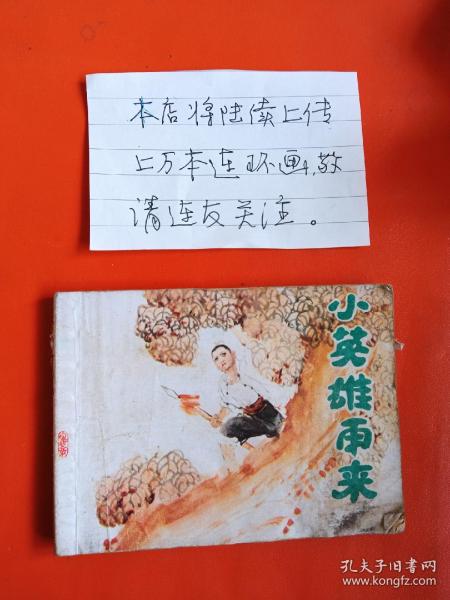 本店将陆续上传
上万本连环画，敬
请连友关注。
小英雄雨来
孔夫子旧书网
www.kongfz.com